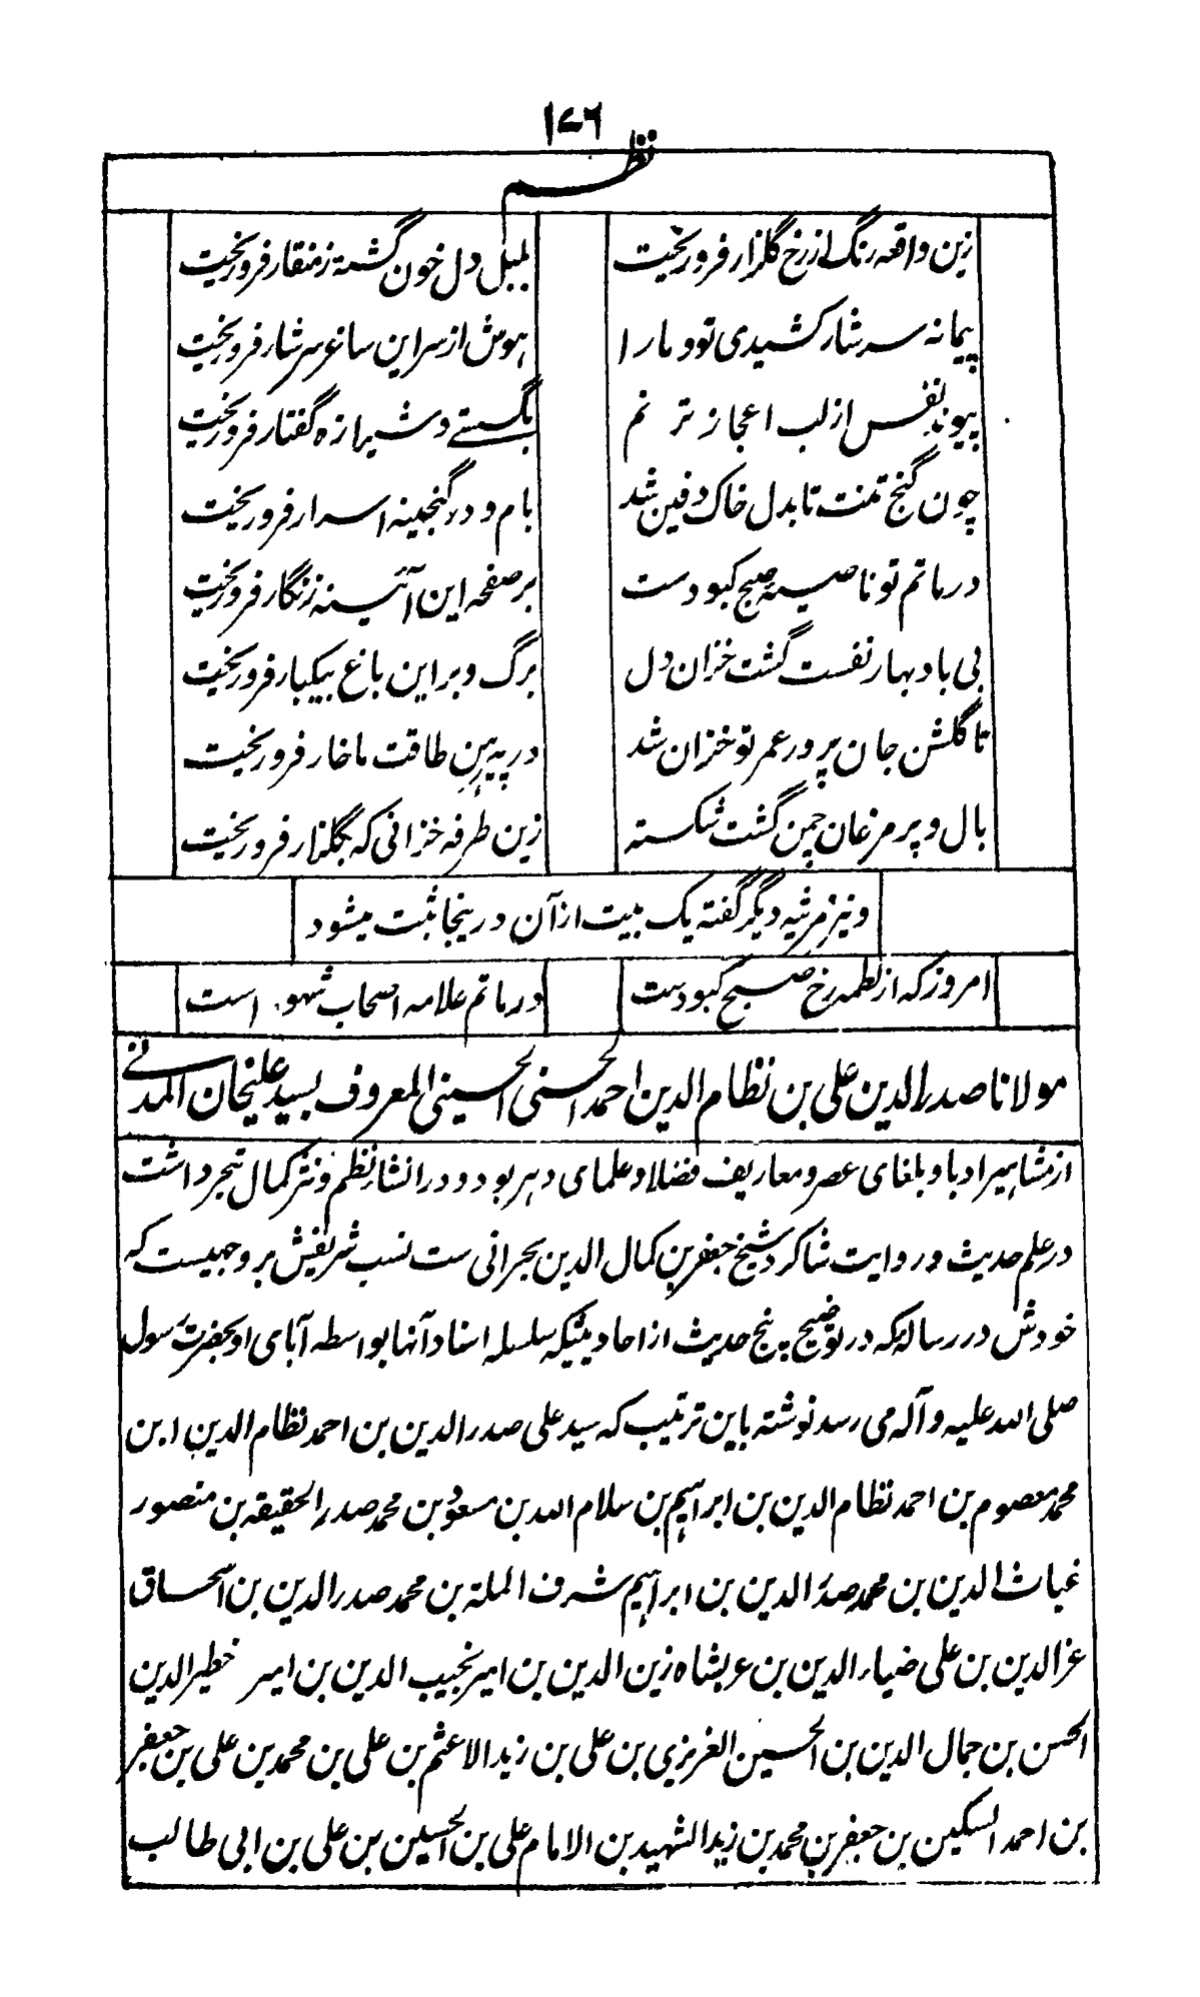 ۱۷۶
نظم
زین واقعه رنگ از رخ گلزار فرو ریخت بلبل دل خون گشته ز منقار فرو ریخت
پیمانه سرشار کشیدی تو و ما را هوش از سر این ساغر سرشار فرو ریخت
پیوند نفس از لب اعجاز ترنم بگسستے و شیرازه گفتار فرو ریخت
چون گنج تمنت تا بدل خاک دفین شد بام و در گنجینه اسرار فرو ریخت
در ماتم تو ناصیه صبح کبودست بر صفحه این آئینه زنگار فرو ریخت
بی باد بهار نفست گشت خزان دل برگ و بر این باغ بیکبار فرو ریخت
تا گلشن جان پرور عمر تو خزان شد در پیرهن طاقت ما خار فرو ریخت
بال و پر مرغان چمن گشت شکسته زین طرفه خزانی که بگلزار فرو ریخت
و نیز مرثیه دیگر گفته یک بیت از آن درینجا ثبت میشود
امروز که از لطمه رخ صبح کبودست در ماتم علامه اصحاب شهود است
مولانا صدرالدین علی بن نظام الدین احمد الحسنی الحسینی المعروف بسید علیخان المدنے
از مشاهیر ادبا و بلغای عصر و معاریف فضلا و علمای دهر بود و در انشار نظم و نثر کمال تبحر داشت
در علم حدیث و روایت شاگرد شیخ جعفر بن کمال الدین بحرانی ست نسب شریفش بر وجهیست که
خودش در رساله که در توضیح پنج حدیث از احادیثیکه سلسله اسناد آنها بواسطه آبای او بحضرت رسول
صلی الله علیه و آله می رسد نوشته باین ترتیب که سید علی صدرالدین بن احمد نظام الدین ابن
محمد معصوم بن احمد نظام الدین بن ابراهیم بن سلام الله بن مسعود بن محمد صدر الحقیقه بن منصور
غیاث الدین بن محمد صدر الدین بن ابراهیم شرف المله بن محمد صدرالدین بن اسحاق
عز الدین بن علی ضیاء الدین بن عربشاه زین الدین بن امیر نجیب الدین بن امیر خطیر الدین
الحسن بن جمال الدین بن الحسین العزیزی بن علی بن زید الاعثم بن علی بن محمد بن علی بن جعفر
بن احمد السکین بن جعفر بن محمد بن زید الشهید بن الامام علی بن الحسین بن علی بن ابی طالب